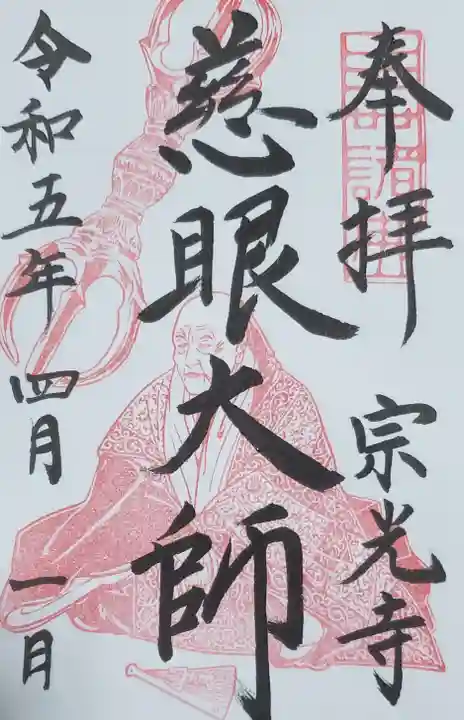 奉拝 宗光寺
慈眼大師
令和五年 四月 一日